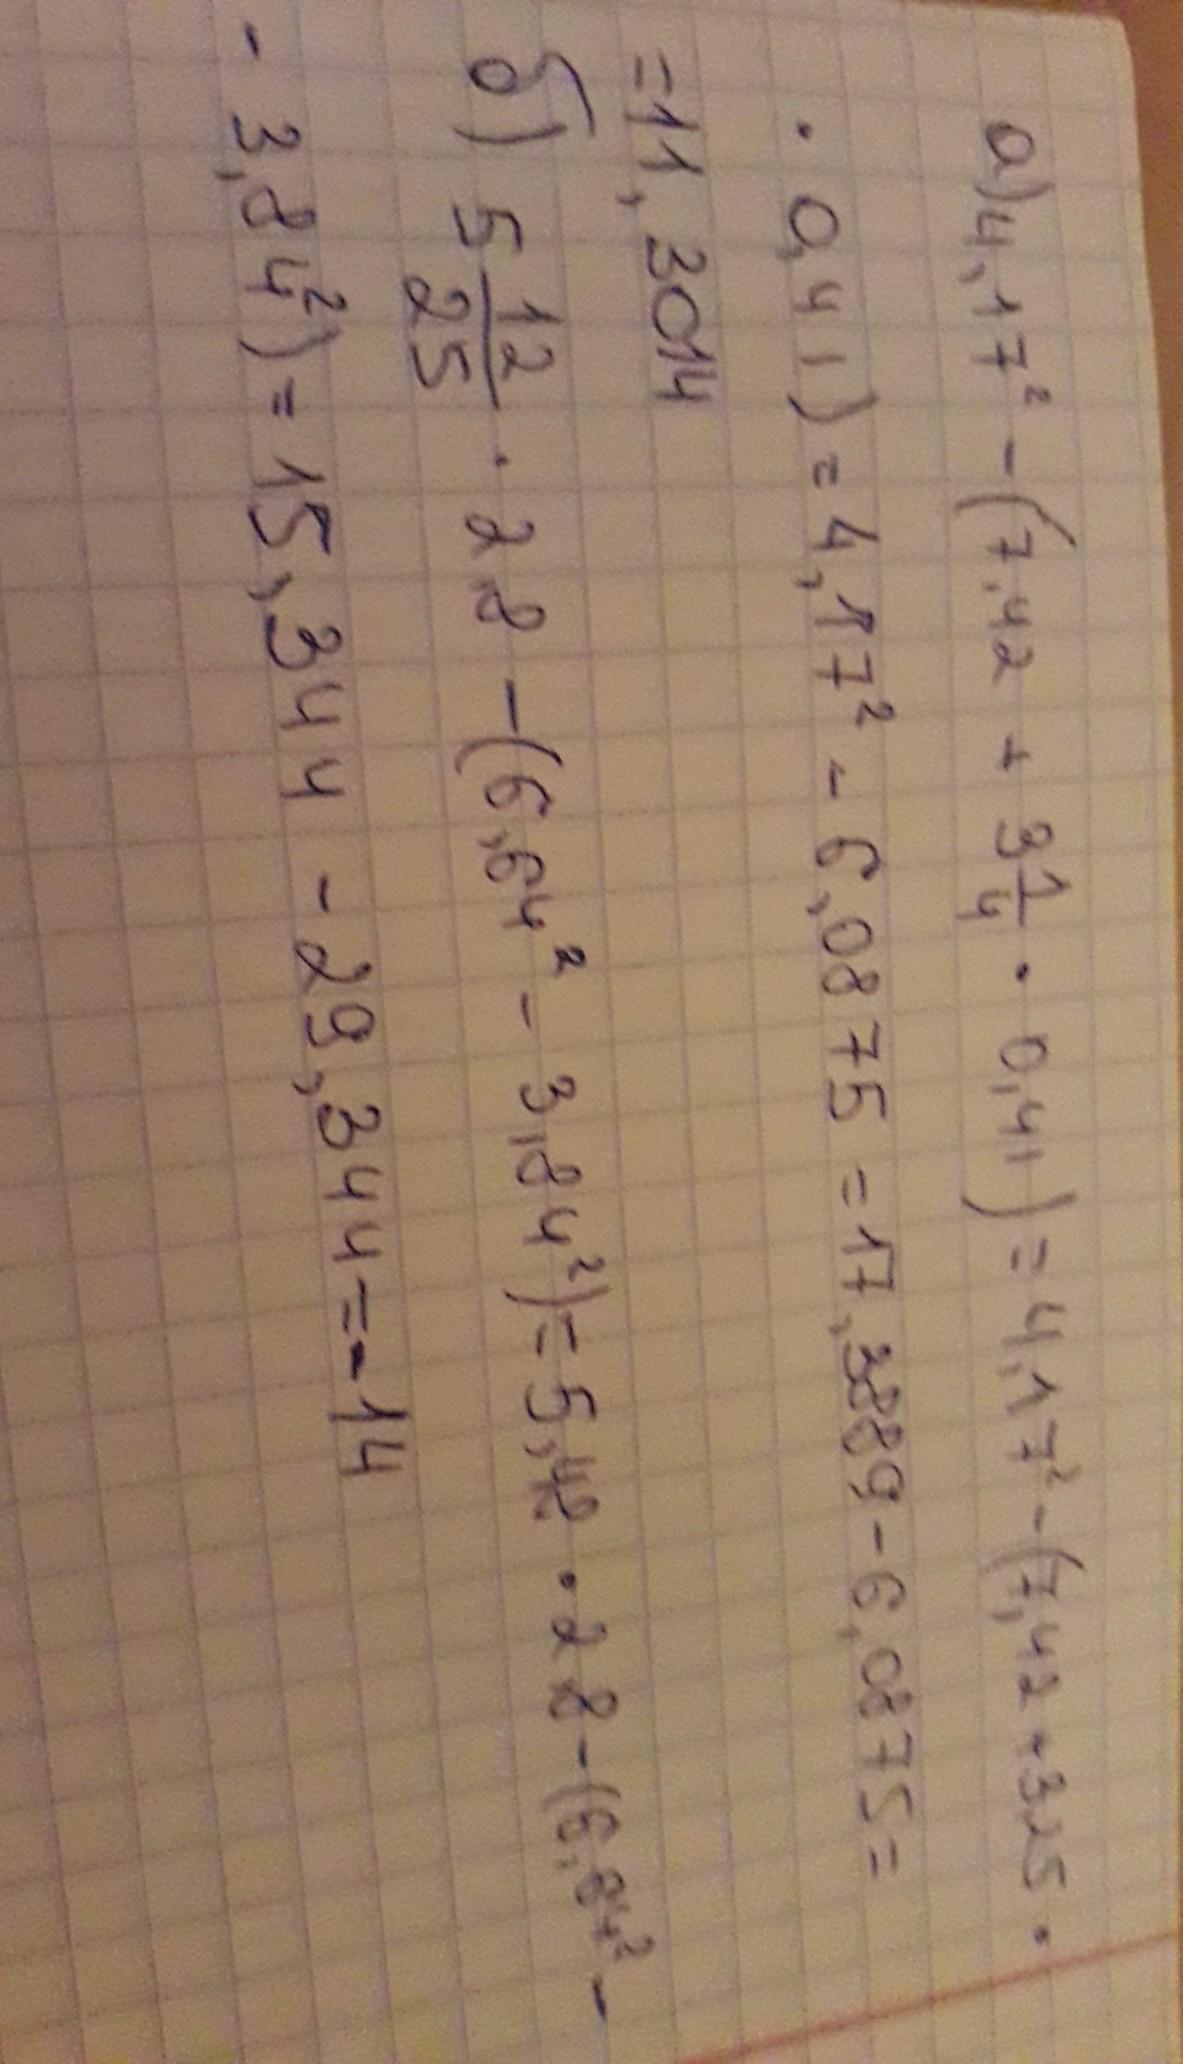 а) 4,17² - (7,42 + 3 1/4 · 0,41) = 4,17² - (7,42 + 3,25 ·
· 0,41) = 4,17² - 6,08875 = 17,3889 - 6,0875 =
= 11,3014
б) 5 12/25 · 2,8 - (6,64² - 3,84²) = 5,48 · 2,8 - (6,64² -
- 3,84²) = 15,344 - 29,344 = -14